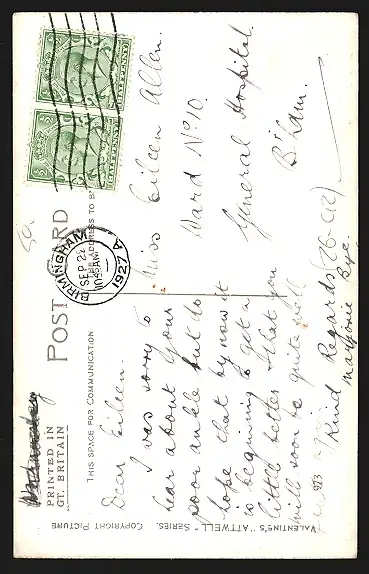 POST CARD
PRINTED IN
GT. BRITAIN
THIS SPACE FOR COMMUNICATION
ADDRESS TO B
VALENTINE'S "ATTWELL" SERIES. COPYRIGHT PICTURE
HALFPENNY
HALFPENNY
BIRMINGHAM
SEP 2
10 45 AM
1927
A
Dear Eileen.
I was sorry to
hear about your
poor ankle but do
hope that by now it
is beginning to get a
little better & that you
will soon be quite well
Kind Regards
Marjorie Bye.
Miss Eileen Allen.
Ward No 10.
General Hospital.
B'ham.